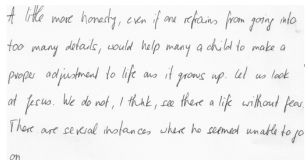 A little more honesty, even if one refrains from going into
too many details, would help many a child to make a
proper adjustment to life as it grows up. Let us look
at Jesus. We do not, I think, see there a life without fear.
There are several instances where he seemed unable to go
on